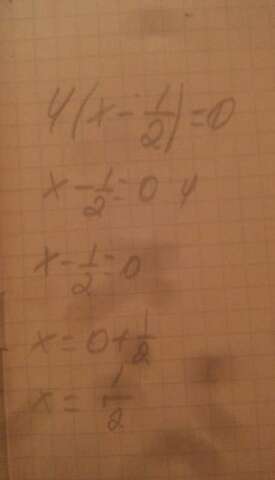 4(x - 1/2) = 0
x - 1/2 = 0 4
x - 1/2 = 0
x = 0 + 1/2
x = 1/2